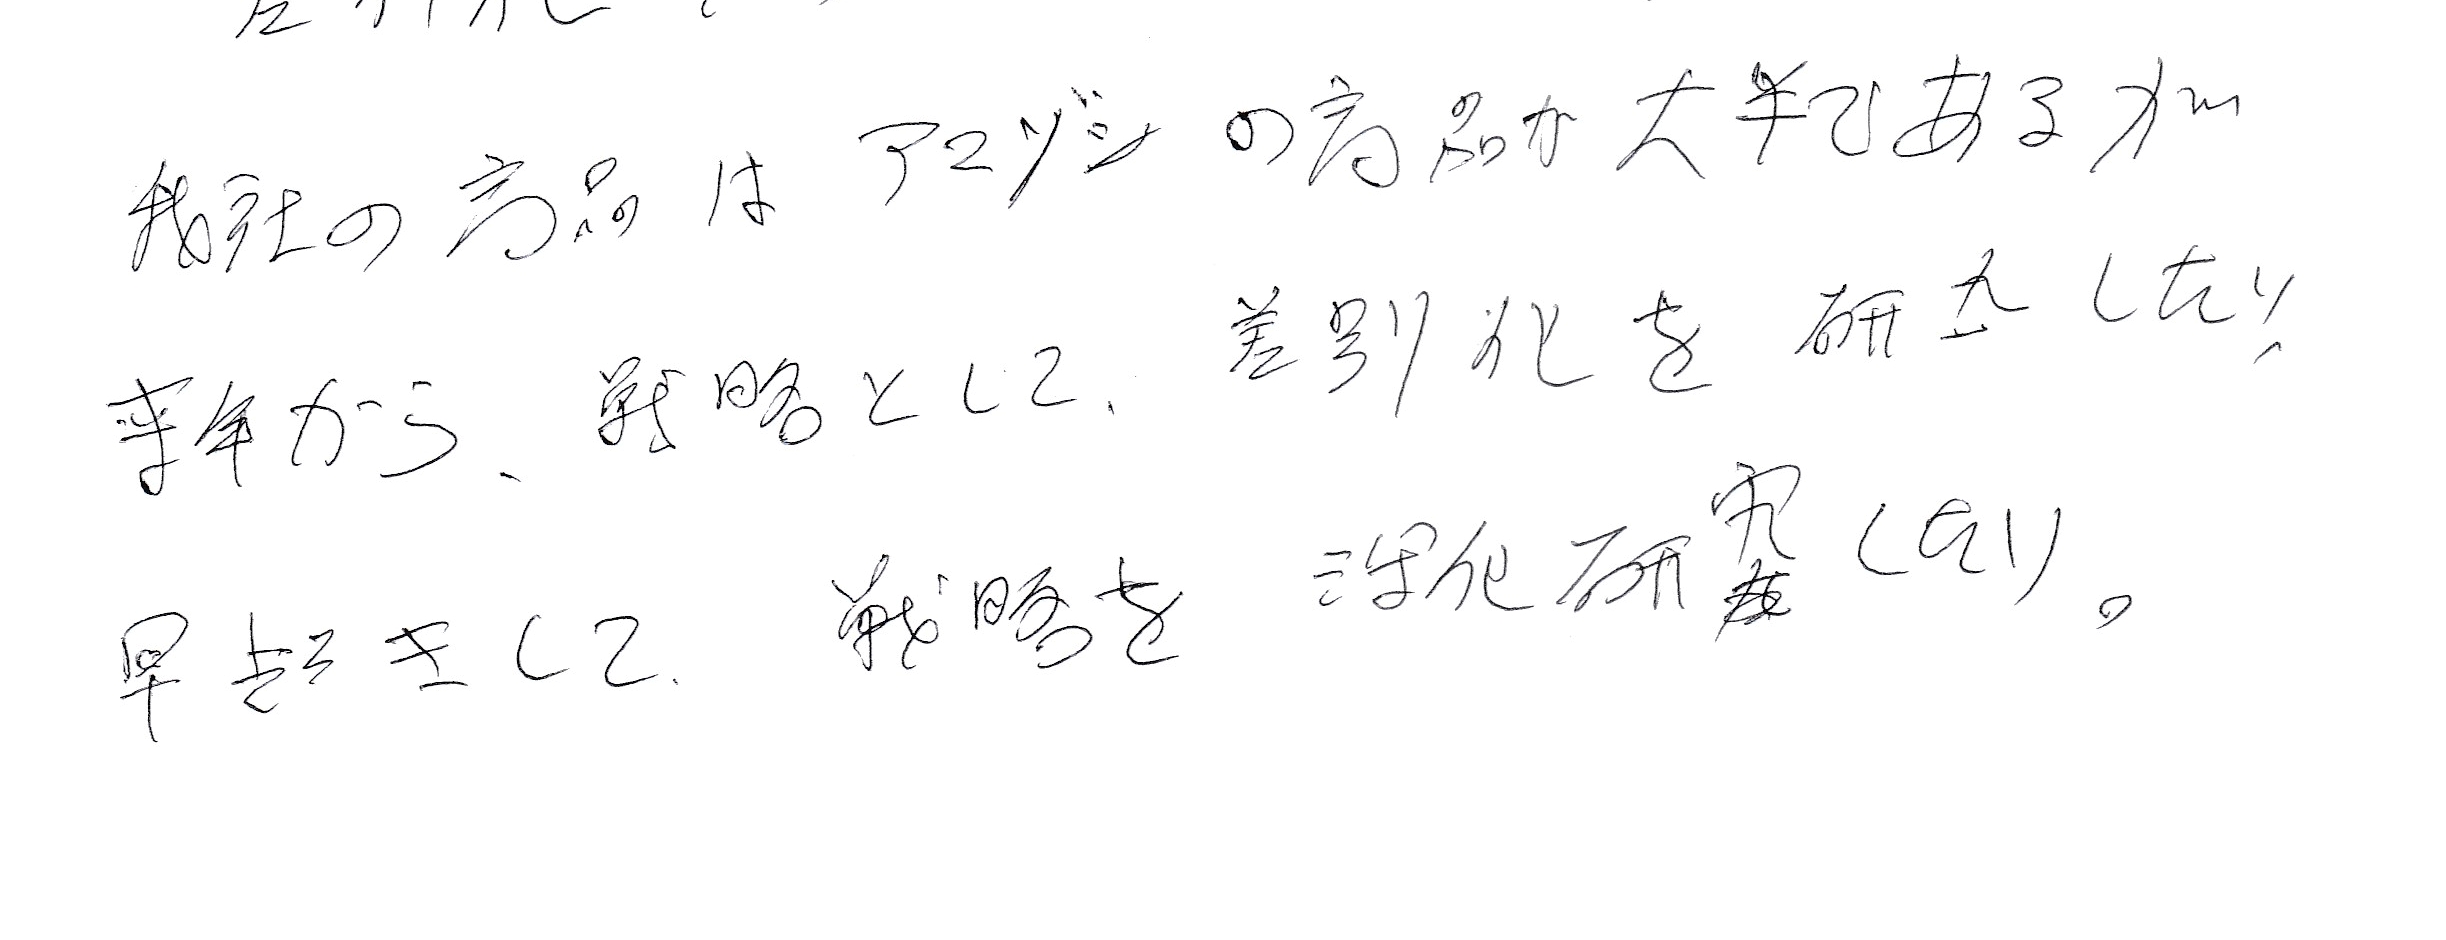 差別化
我社の商品はアマゾンの商品が大半であるが
来年から、戦略として、差別化を研究したい、
早起きして、戦略を深化研究したい。